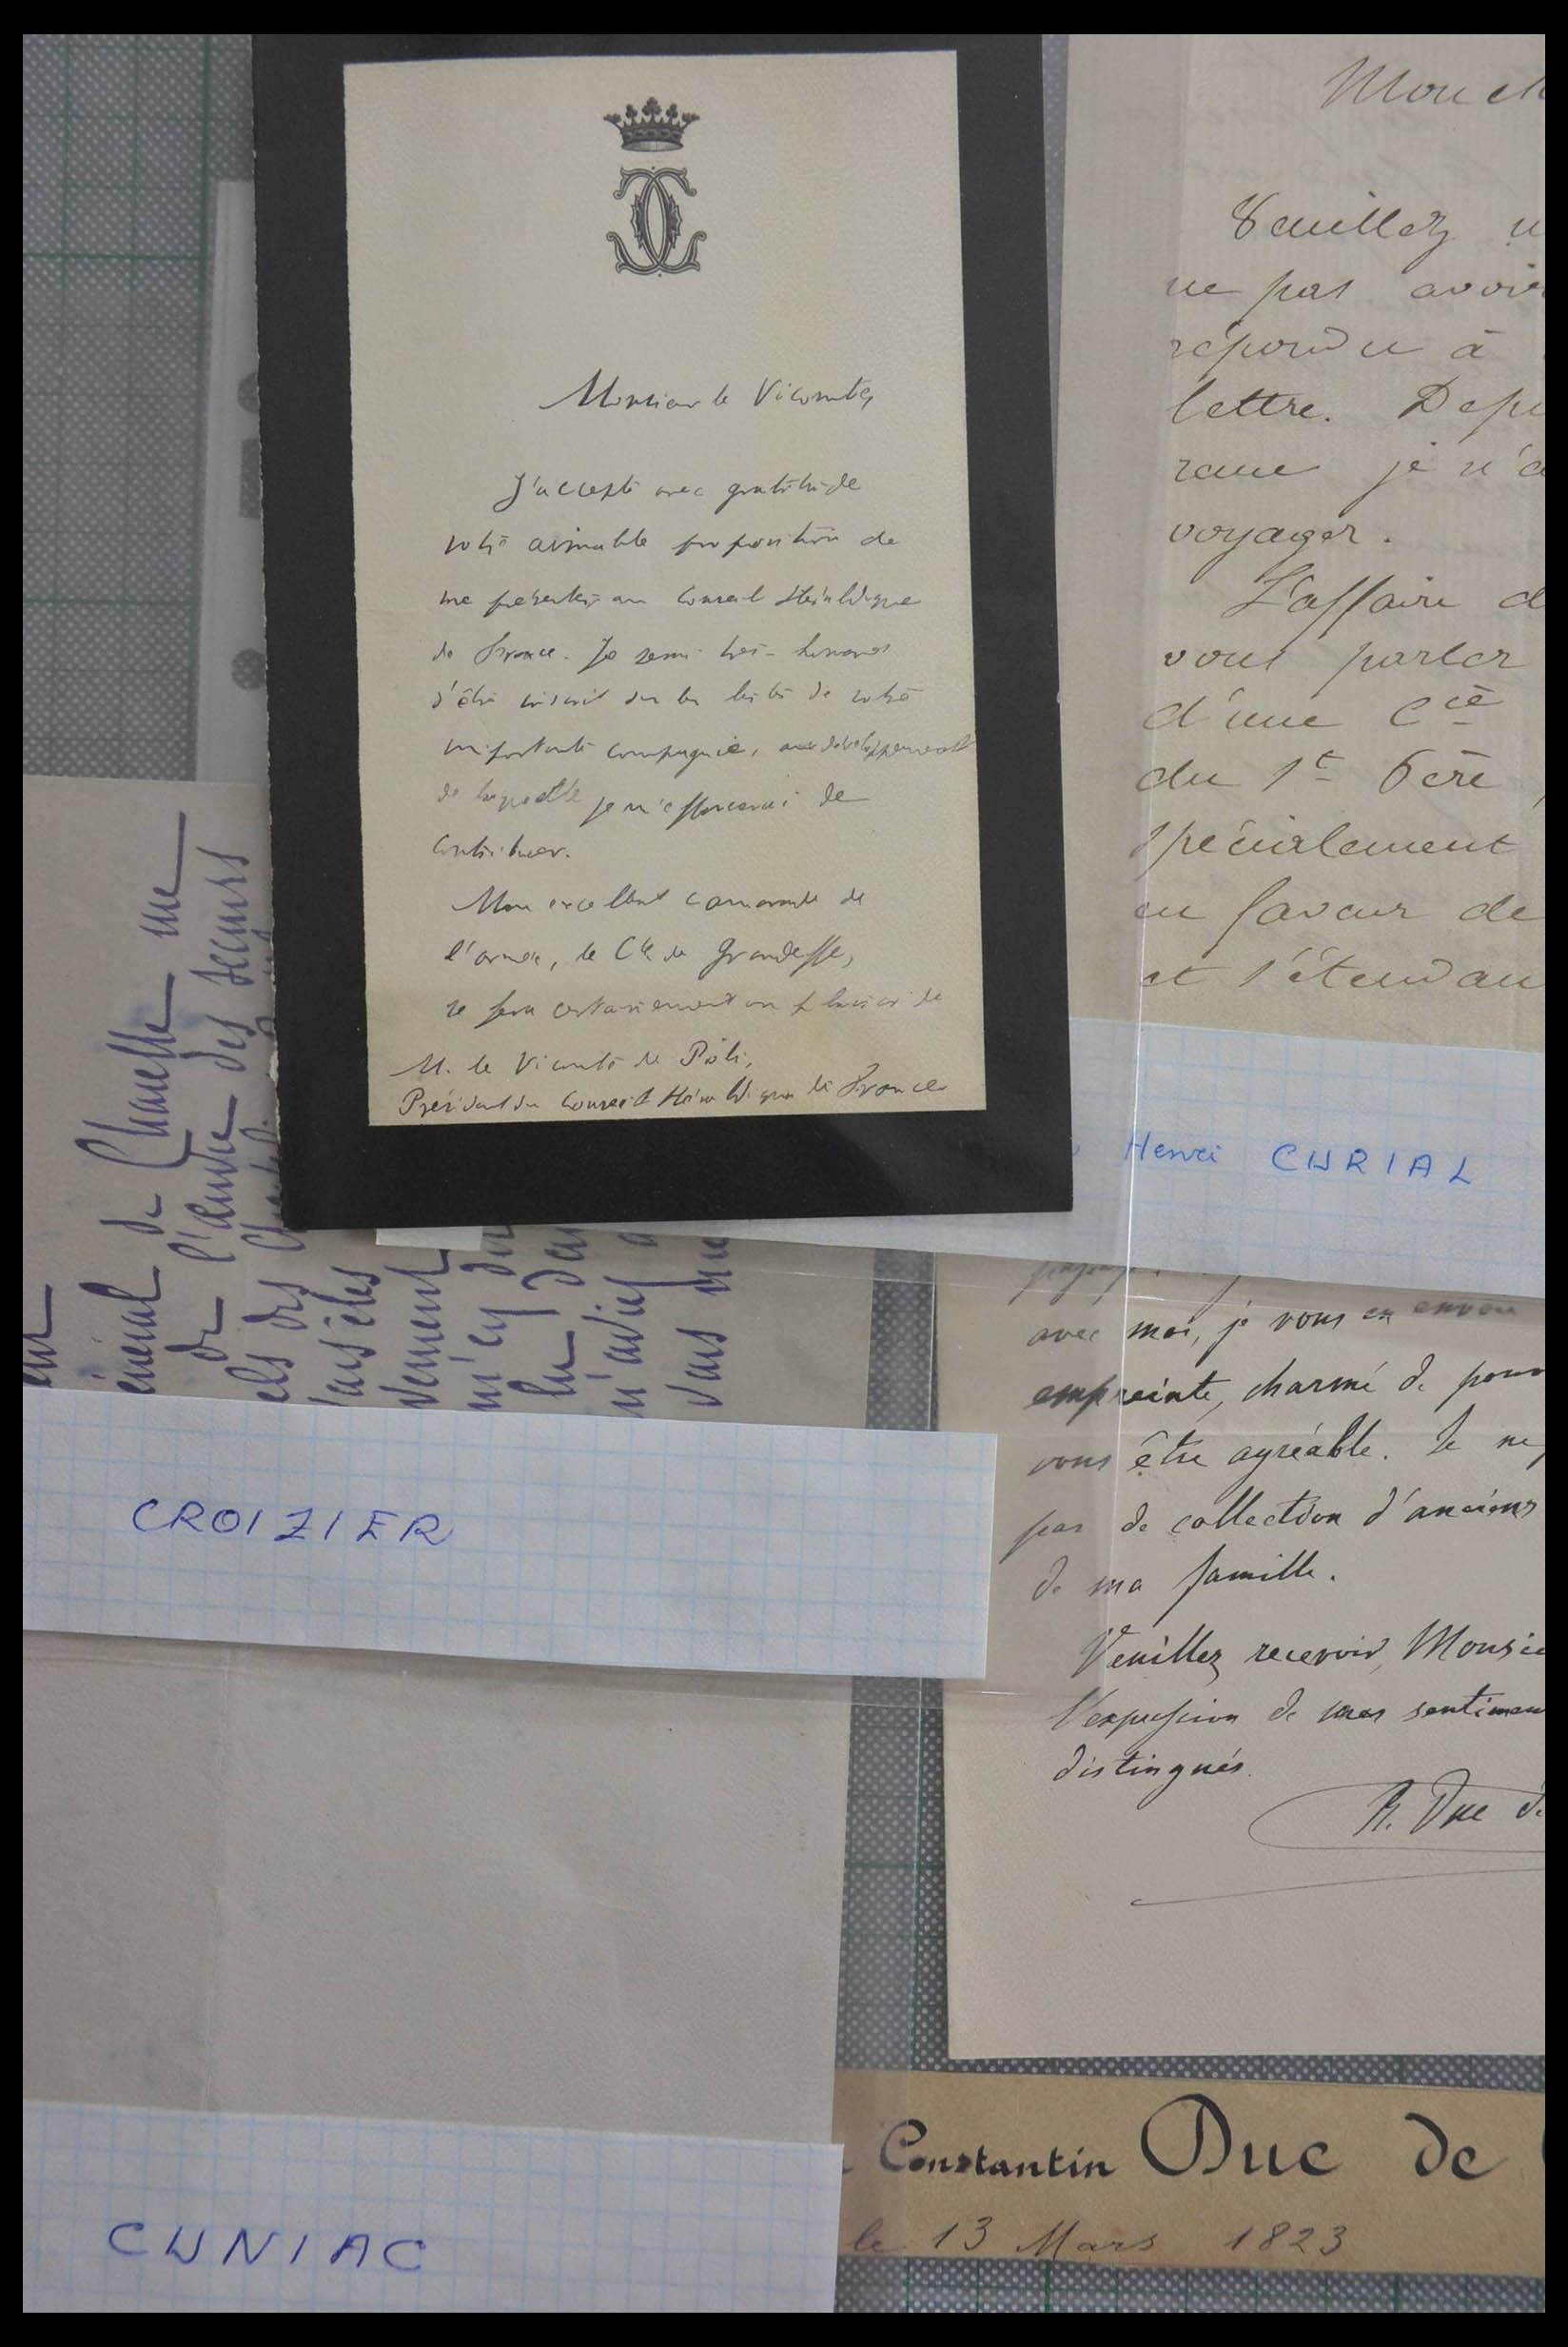 Monsieur le Vicomte,
J'accepte avec gratitude
votre aimable proposition de
me présenter au Conseil Héraldique
de France. Je serai très-honoré
d'être inscrit sur les listes de votre
importante compagnie, au développement
de laquelle je m'efforcerai de
contribuer.
Mon excellent camarade de
l'armée, le Cte de
se fera certainement un plaisir de
M. le Vicomte de Poli,
Président du Conseil Héraldique de France
Mon ch
Veuillez
ne pas avoir
répondu à
lettre. Depu
je n'a
voyager.
L'affaire d
vous parler
d'une Cie
du 1er
spécialement
en faveur de
et s'étendan
Henri CURIAL
avec moi, je vous en envoie
empreinte, charmé de pouv
vous être agréable. Je ne
pas de collection d'anciens
de ma famille.
Veuillez recevoir, Monsie
l'expression de mes sentimen
distingués.
R. Duc de
Constantin Duc de
le 13 Mars 1823
énéral de Charette me
de l'armée des secours
els des
vous êtes
m'en
vous
CROIZIER
CUNIAC